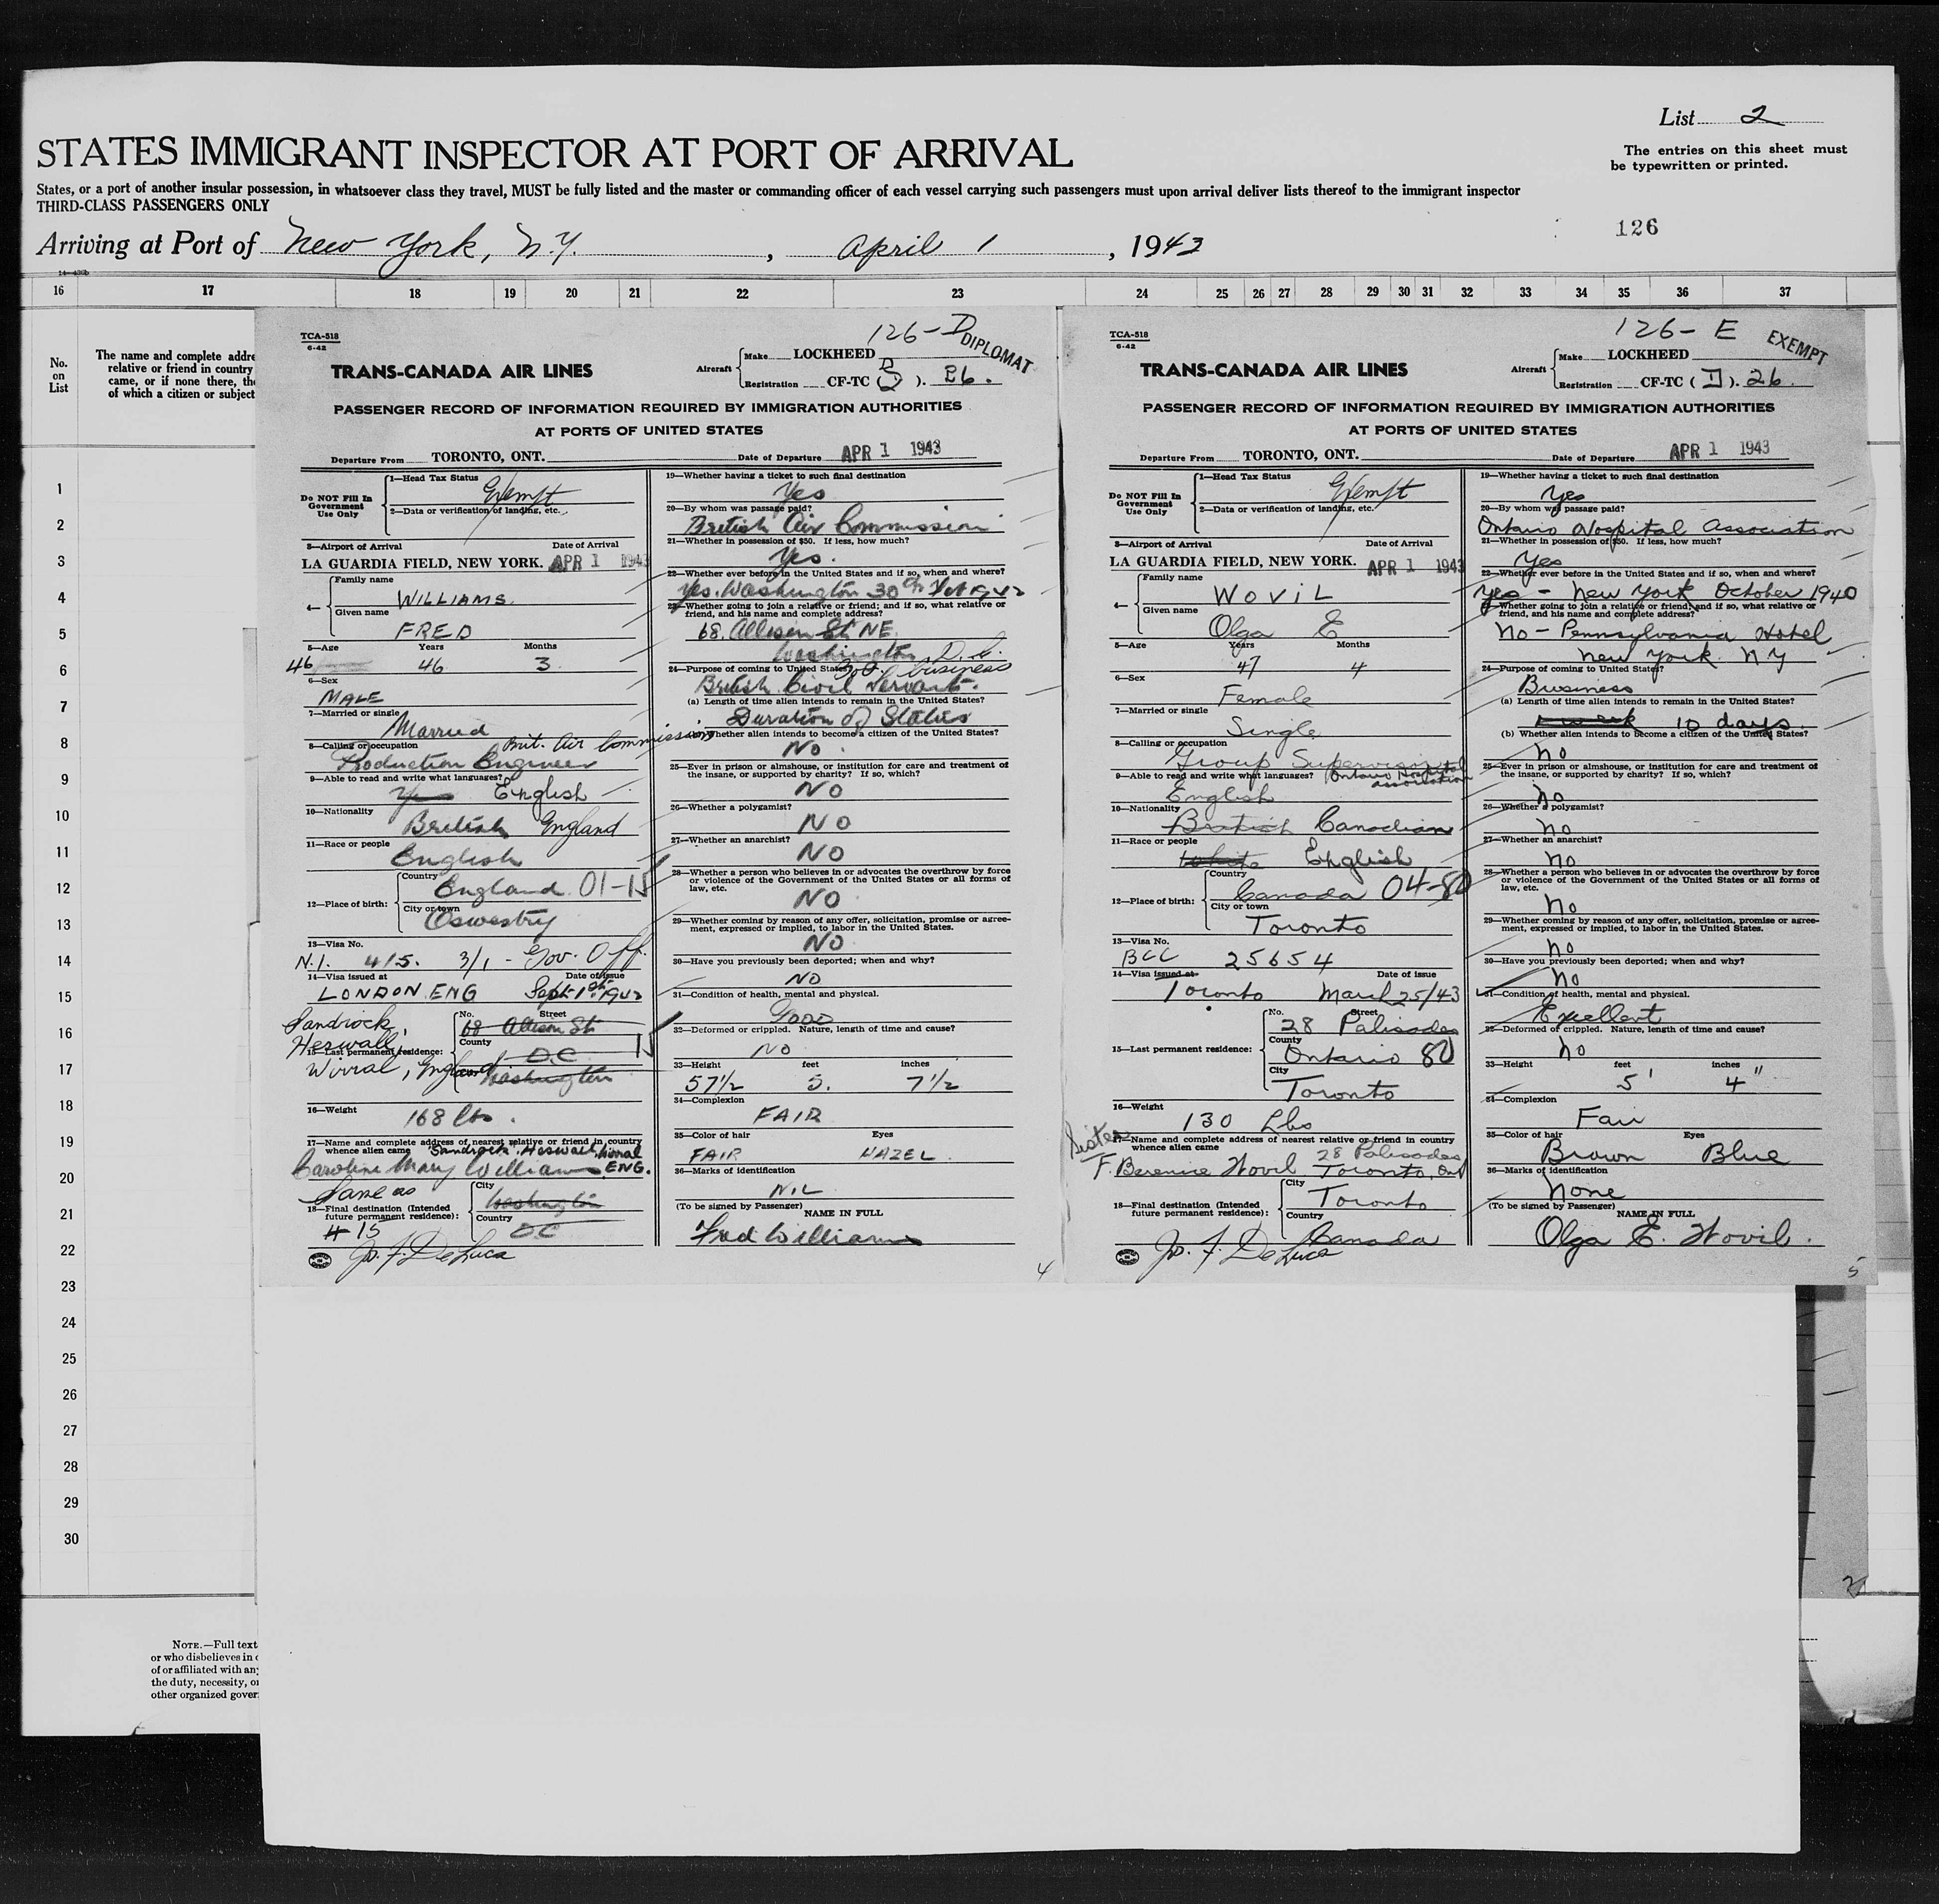 List 2
STATES IMMIGRANT INSPECTOR AT PORT OF ARRIVAL
The entries on this sheet must
be typewritten or printed.
States, or a port of another insular possession, in whatsoever class they travel, MUST be fully listed and the master or commanding officer of each vessel carrying such passengers must upon arrival deliver lists thereof to the immigrant inspector
THIRD-CLASS PASSENGERS ONLY
126
Arriving at Port of New York, N.Y. , April 1 , 1943
16 17 18 19 20 21 22 23 24 25 26 27 28 29 30 31 32 33 34 35 36 37
No.
on
List
The name and complete addre
relative or friend in country
came, or if none there, the
of which a citizen or subject
1
2
3
4
5
6
7
8
9
10
11
12
13
14
15
16
17
18
19
20
21
22
23
24
25
26
27
28
29
30
NOTE.—Full text
or who disbelieves in o
of or affiliated with any
the duty, necessity, or
other organized gover
TCA-518
6-42
126-D DIPLOMAT
TRANS-CANADA AIR LINES
Aircraft
Make LOCKHEED
Registration CF-TC (D). 26.
PASSENGER RECORD OF INFORMATION REQUIRED BY IMMIGRATION AUTHORITIES
AT PORTS OF UNITED STATES
Departure From TORONTO, ONT. Date of Departure APR 1 1943
Do NOT Fill In
Government
Use Only
1—Head Tax Status
Exempt
2—Data or verification of landing, etc.
3—Airport of Arrival Date of Arrival
LA GUARDIA FIELD, NEW YORK. APR 1 1943
4—
Family name
WILLIAMS.
Given name
FRED
5—Age Years Months
46 46 3
6—Sex
MALE
7—Married or single
Married
8—Calling or occupation Brit. Air Commission
Production Engineer
9—Able to read and write what languages?
Yes English
10—Nationality
British England
11—Race or people
English
12—Place of birth:
Country
England 01-15
City or town
Oswestry
13—Visa No.
N.I. 415. 3/1 - Gov. Off.
14—Visa issued at Date of issue
LONDON. ENG Sept 1st 1942
Sandrock,
Heswall,
Wirral, England
15—Last permanent residence:
No. Street
68 Allison St.
County
D.C 15
Washington
16—Weight
168 lbs.
17—Name and complete address of nearest relative or friend in country
whence alien came "Sandrock", Heswall, Wirral
Caroline Mary Williams ENG.
Same as
18—Final destination (Intended
future permanent residence):
# 15
City
Washington
Country
DC
Jo. F. DeLuca
19—Whether having a ticket to such final destination
Yes
20—By whom was passage paid?
British Air Commission
21—Whether in possession of $50. If less, how much?
Yes.
22—Whether ever before in the United States and if so, when and where?
Yes. Washington 30th Oct 1942
23—Whether going to join a relative or friend; and if so, what relative or
friend, and his name and complete address?
68. Allison St. NE.
Washington D.C.
24—Purpose of coming to United States? Gov. business
British Civil Servant.
(a) Length of time alien intends to remain in the United States?
Duration of Status
(b) Whether alien intends to become a citizen of the United States?
No.
25—Ever in prison or almshouse, or institution for care and treatment of
the insane, or supported by charity? If so, which?
NO
26—Whether a polygamist?
NO
27—Whether an anarchist?
NO
28—Whether a person who believes in or advocates the overthrow by force
or violence of the Government of the United States or all forms of
law, etc.
NO
29—Whether coming by reason of any offer, solicitation, promise or agree-
ment, expressed or implied, to labor in the United States.
NO
30—Have you previously been deported; when and why?
NO
31—Condition of health, mental and physical.
GOOD
32—Deformed or crippled. Nature, length of time and cause?
NO
33—Height feet inches
57½ 5. 7½
34—Complexion
FAIR
35—Color of hair Eyes
FAIR HAZEL.
36—Marks of identification
NIL
(To be signed by Passenger) NAME IN FULL
Fred Williams
4
TCA-518
6-42
126-E EXEMPT
TRANS-CANADA AIR LINES
Aircraft
Make LOCKHEED
Registration CF-TC (D). 26.
PASSENGER RECORD OF INFORMATION REQUIRED BY IMMIGRATION AUTHORITIES
AT PORTS OF UNITED STATES
Departure From TORONTO, ONT. Date of Departure APR 1 1943
Do NOT Fill In
Government
Use Only
1—Head Tax Status
Exempt
2—Data or verification of landing, etc.
3—Airport of Arrival Date of Arrival
LA GUARDIA FIELD, NEW YORK. APR 1 1943
4—
Family name
WOVIL
Given name
Olga E
5—Age Years Months
47 4
6—Sex
Female
7—Married or single
Single
8—Calling or occupation
Group Supervisor
9—Able to read and write what languages? Ontario Hospital
association
English
10—Nationality
British Canadian
11—Race or people
White English
12—Place of birth:
Country
Canada 04-80
City or town
Toronto
13—Visa No.
BCC 25654
14—Visa issued at Date of issue
Toronto March 25/43
15—Last permanent residence:
No. Street
28 Palisades
County
Ontario 80
City
Toronto
16—Weight
130 Lbs
Sister
17—Name and complete address of nearest relative or friend in country
whence alien came 28 Palisades
F. Berenice Wovil Toronto, Ont
18—Final destination (Intended
future permanent residence):
City
Toronto
Country
Canada
Jo. F. DeLuca
19—Whether having a ticket to such final destination
Yes
20—By whom was passage paid?
Ontario Hospital Association
21—Whether in possession of $50. If less, how much?
Yes
22—Whether ever before in the United States and if so, when and where?
Yes - New York October 1940
23—Whether going to join a relative or friend; and if so, what relative or
friend, and his name and complete address?
No - Pennsylvania Hotel
New York. NY
24—Purpose of coming to United States?
Business
(a) Length of time alien intends to remain in the United States?
1 week 10 days.
(b) Whether alien intends to become a citizen of the United States?
no
25—Ever in prison or almshouse, or institution for care and treatment of
the insane, or supported by charity? If so, which?
no
26—Whether a polygamist?
no
27—Whether an anarchist?
no
28—Whether a person who believes in or advocates the overthrow by force
or violence of the Government of the United States or all forms of
law, etc.
no
29—Whether coming by reason of any offer, solicitation, promise or agree-
ment, expressed or implied, to labor in the United States.
no
30—Have you previously been deported; when and why?
no
31—Condition of health, mental and physical.
Excellent
32—Deformed or crippled. Nature, length of time and cause?
no
33—Height feet inches
5' 4"
34—Complexion
Fair
35—Color of hair Eyes
Brown Blue
36—Marks of identification
none
(To be signed by Passenger) NAME IN FULL
Olga E. Wovil.
5